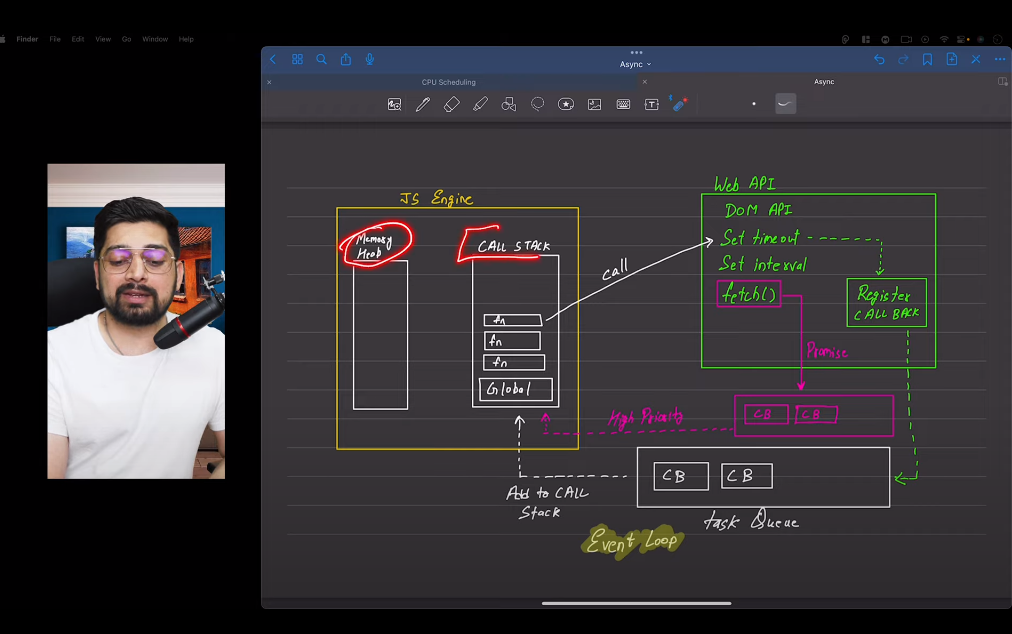 Finder File Edit View Go Window Help
Async
CPU Scheduling
Async
JS Engine
Memory
Heab
CALL STACK
fn
fn
fn
Global
call
Web API
DOM API
Set timeout
Set interval
fetch()
Register
CALL BACK
Promise
CB CB
High Priority
CB CB
Add to CALL
Stack
task Queue
Event Loop